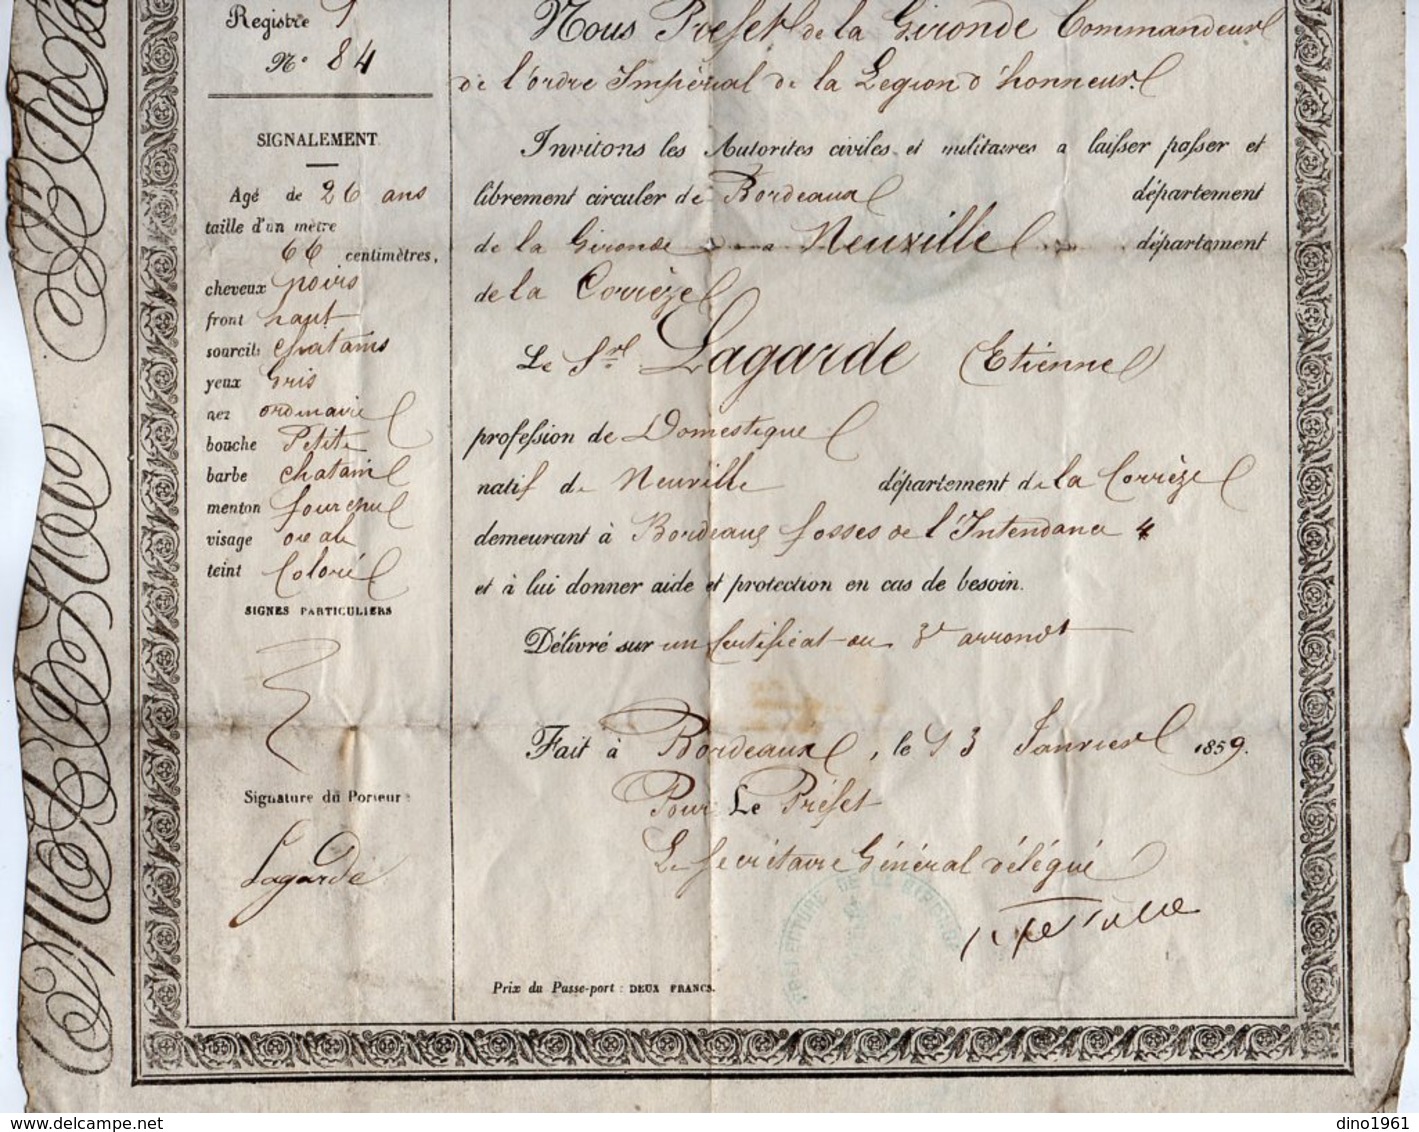 Registre 1
N° 84
SIGNALEMENT
Agé de 26 ans
taille d'un mètre
66 centimètres,
cheveux noirs
front haut
sourcils chatains
yeux Gris
nez ordinaire
bouche Petite
barbe chatain
menton fourchu
visage ovale
teint Coloré
SIGNES PARTICULIERS
Signature du Porteur :
Lagarde
Nous Préfet de la Gironde Commandeur
de l'ordre Impérial de la Légion d'honneur.
Invitons les Autorités civiles et militaires a laisser passer et
librement circuler de Bordeaux département
de la Gironde a Neuville département
de la Corrèze
Le Sr. Lagarde (Etienne)
profession de Domestique
natif de Neuville département de la Corrèze
demeurant à Bordeaux fosses de l'Intendance 4
et à lui donner aide et protection en cas de besoin.
Délivré sur un Certificat du 3e arrondt
Fait à Bordeaux, le 13 Janvier 1859.
Pour Le Préfet
Le Secrétaire Général délégué
PRÉFECTURE DE LA GIRONDE
Prix du Passe-port : DEUX FRANCS.
delcampe.net
dino1961